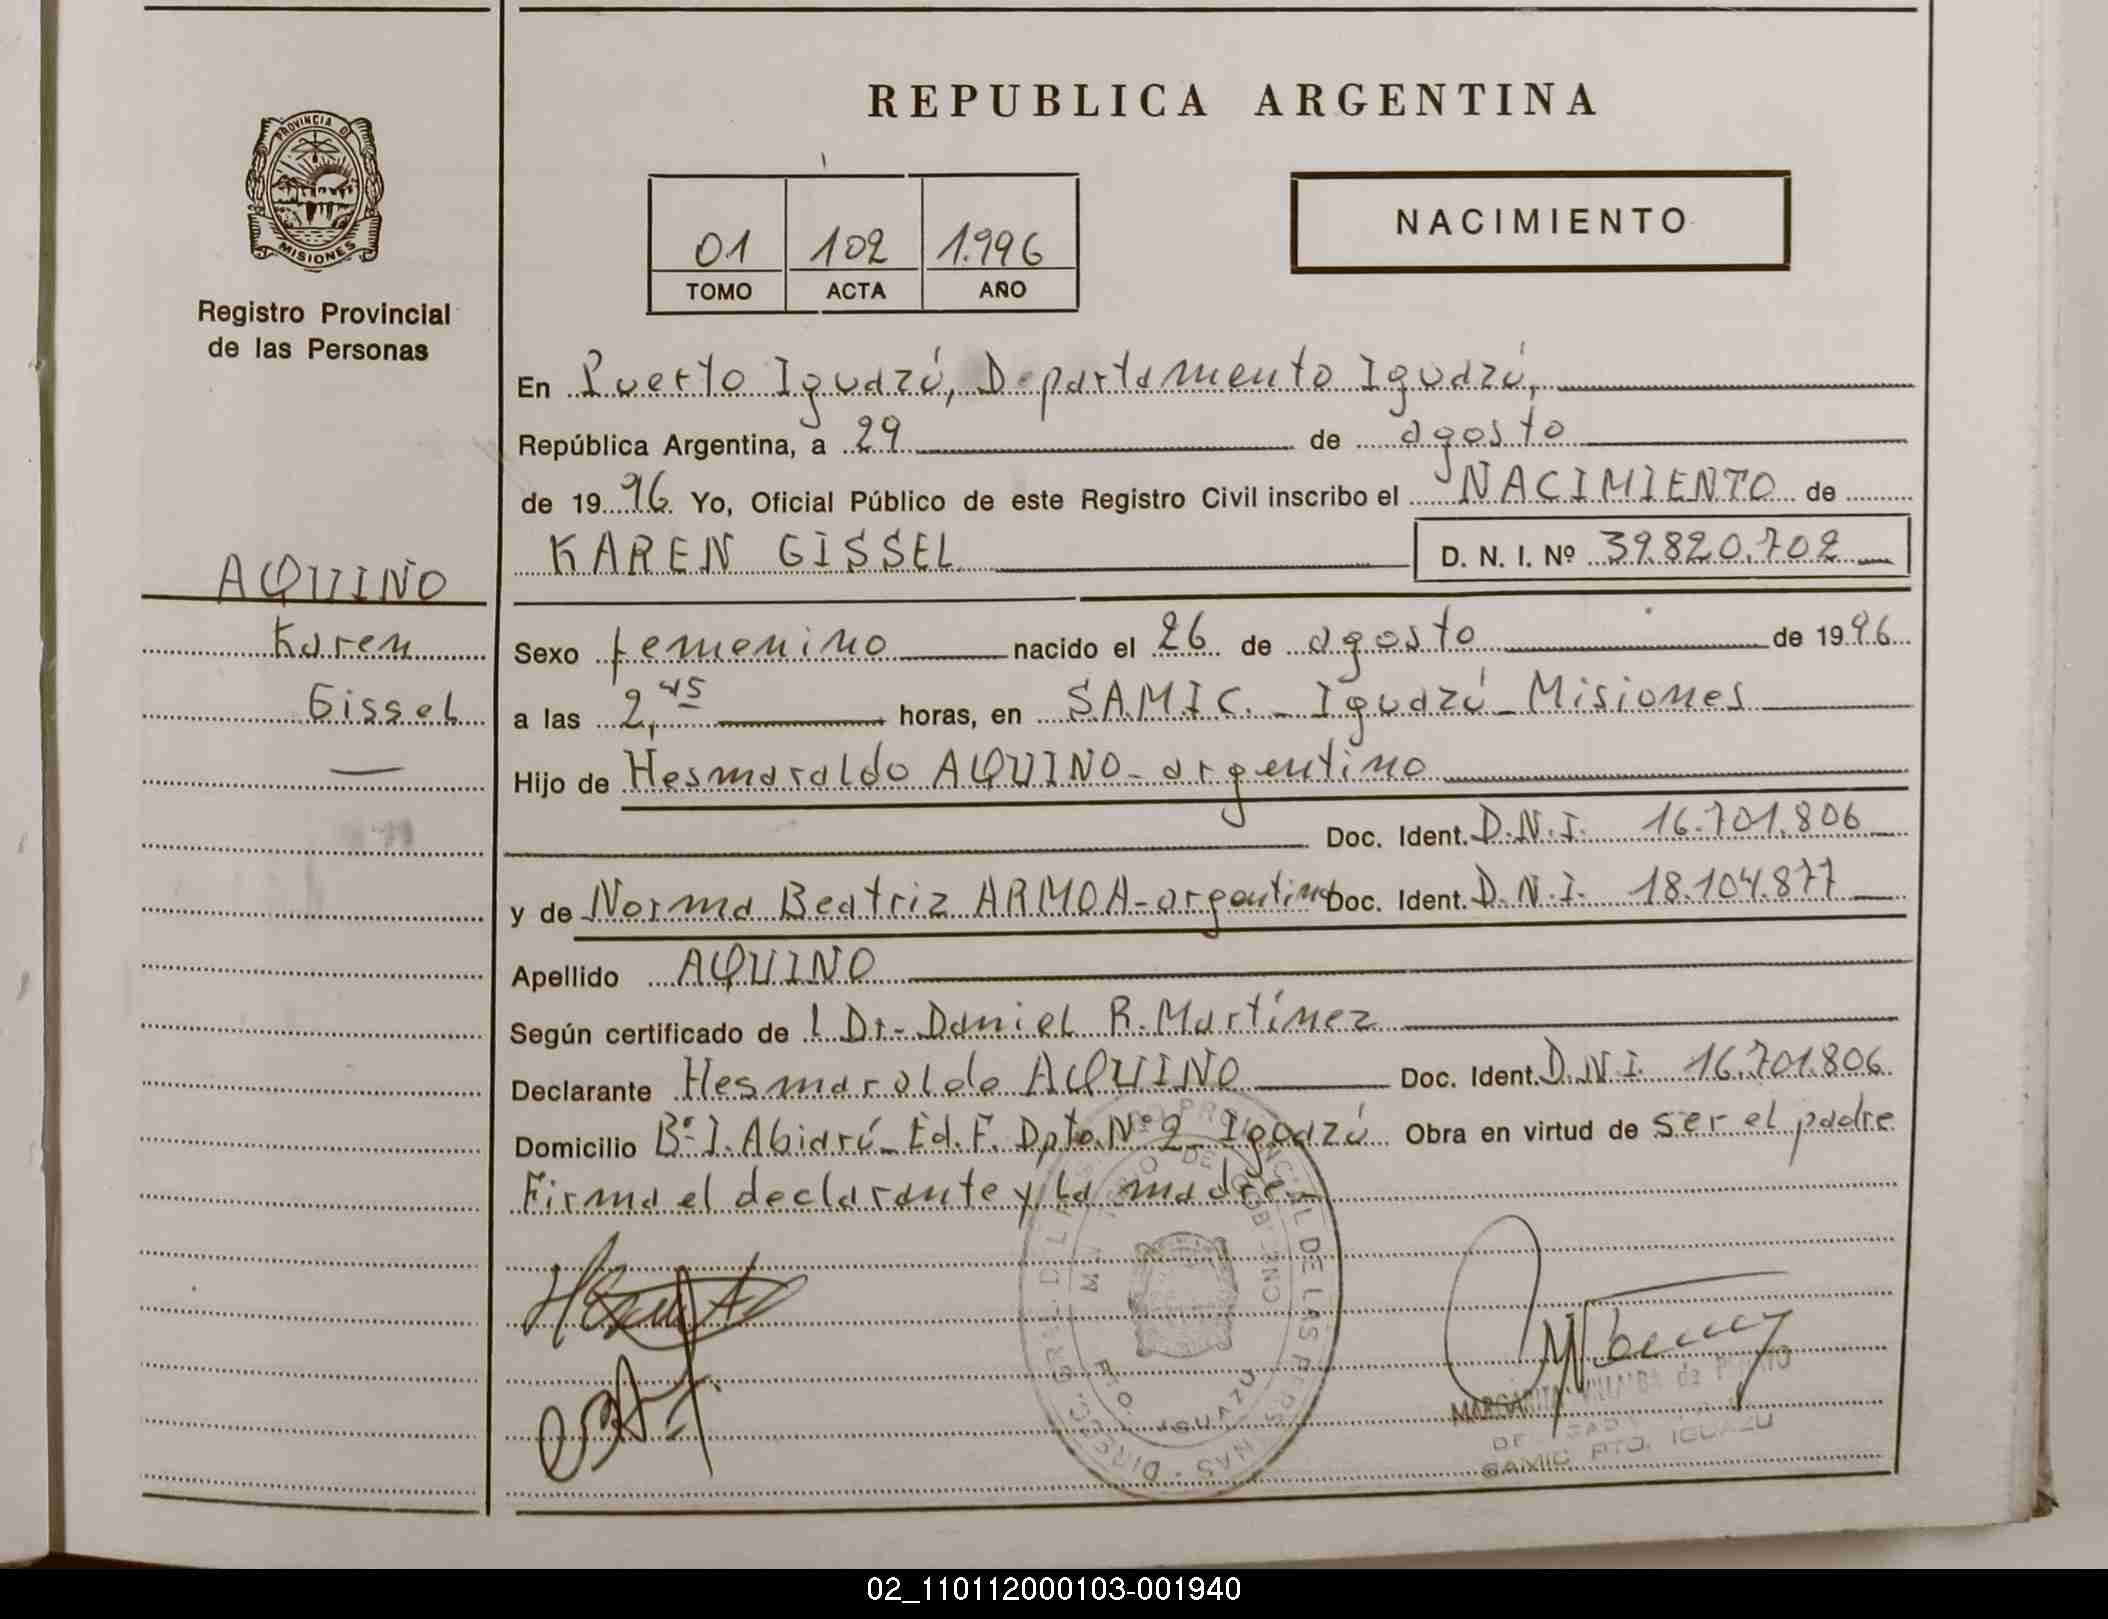 PROVINCIA DE
MISIONES
Registro Provincial
de las Personas
AQUINO
Karen
Gissel
REPUBLICA ARGENTINA
01 102 1.996
TOMO ACTA AÑO
NACIMIENTO
En Puerto Iguazú, Departamento Iguazú,
República Argentina, a 29 de agosto
de 19 96 Yo, Oficial Público de este Registro Civil inscribo el NACIMIENTO de
KAREN GISSEL D. N. I. Nº 39.820.702
Sexo femenino nacido el 26 de agosto de 19 96
a las 2,45 horas, en S.A.M.I.C. - Iguazú - Misiones
Hijo de Hesmaraldo AQUINO - argentino
Doc. Ident. D.N.I. 16.701.806
y de Norma Beatriz ARMOA - argentina Doc. Ident. D.N.I. 18.104.877
Apellido AQUINO
Según certificado de l Dr. Daniel R. Martínez
Declarante Hesmaraldo AQUINO Doc. Ident. D.N.I. 16.701.806
Domicilio Bº I. Abiarú - Ed. F. Dpto. Nº 2 Iguazú Obra en virtud de ser el padre
Firma el declarante y la madre
SAMIC PTO. IGUAZU
02_110112000103-001940